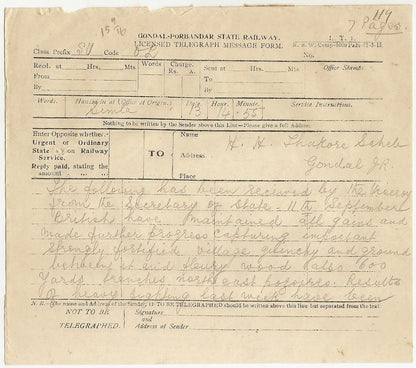 7 Pages
GONDAL-PORBANDAR STATE RAILWAY.
LICENSED TELEGRAPH MESSAGE FORM.
Class Prefix Code
No.
Recd. at Hrs. Mts. Words Charge. Rs. A. Sent at Hrs. Mts. Office Stamp.
From To
By By
Words. Handed in at (Office of Origin). Date Hour. Minute. Service Instructions.
Simla 4. 55
Nothing to be written by the Sender above this Line—Please give a full Address.
Enter Opposite whether
Urgent or Ordinary
State or on Railway
Service.
Reply paid, stating the
amount
TO
Name
H. H. Thakore Saheb
Address.
Gondal
Place
The following has been received by the Viceroy
from the Secretary of State - 11th September
British have maintained all gains and
made further progress capturing important
strongly fortified village Ginchy and ground
between it and Leuze wood & also 600
yards trenches north east Pozieres. Results
of heavy fighting last week have been
N. B.—The name and Address of the Sender, IF TO BE TELEGRAPHED should be written above this line but separated from the text.
NOT TO BE
TELEGRAPHED.
Signature
and
Address of Sender